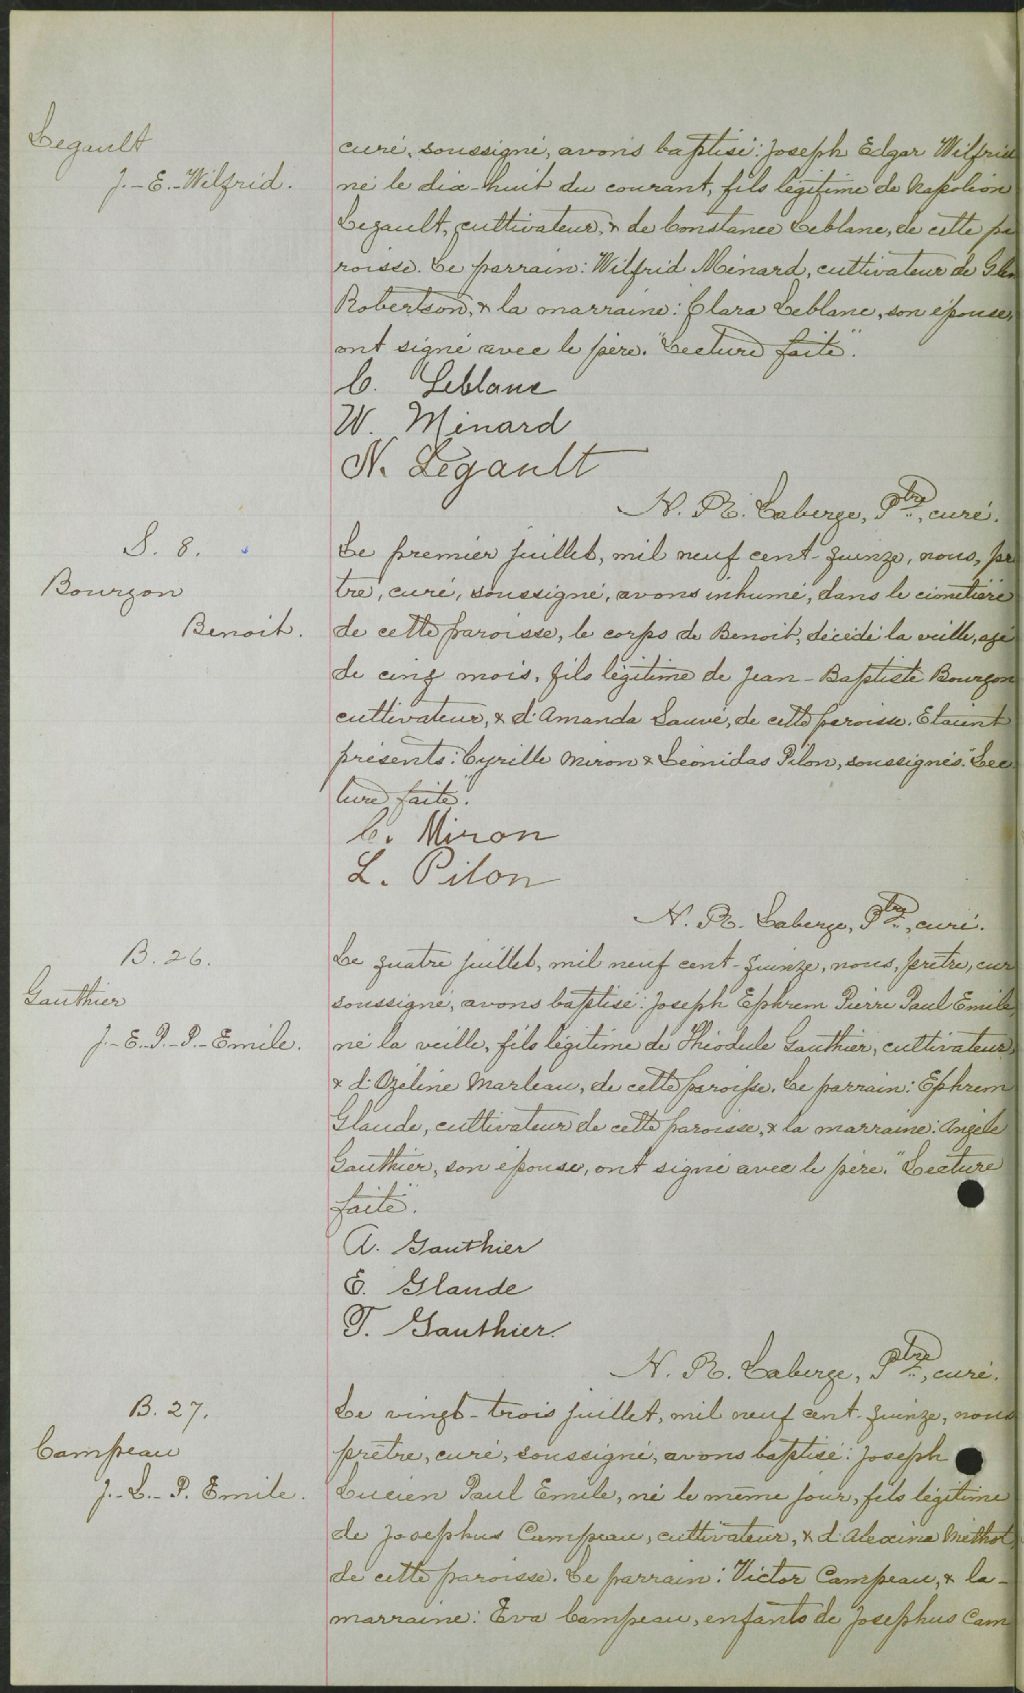 Legault
J.-E.-Wilfrid.
curé, soussigné, avons baptisé: Joseph Edgar Wilfrid
né le dix-huit du courant, fils légitime de Napoléon
Legault, cultivateur, & de Constance Leblanc, de cette pa
roisse. Le parrain: Wilfrid Ménard, cultivateur de Glen
Robertson, & la marraine: Clara Leblanc, son épouse,
ont signé avec le père. "Lecture faite".
C. Leblanc
W. Ménard
N. Legault
N. R. Laberge, Ptre, curé.
S. 8.
Bourgon
Benoit.
Le premier juillet, mil neuf cent-quinze, nous, prê
tre, curé, soussigné, avons inhumé, dans le cimetière
de cette paroisse, le corps de Benoit, décédé la veille, agé
de cinq mois, fils légitime de Jean-Baptiste Bourgon
cultivateur, & d'Amanda Sauvé, de cette paroisse. Etaient
présents: Cyrille Miron & Léonidas Pilon, soussignés. "Lec
ture faite".
C. Miron
L. Pilon
N. R. Laberge, Ptre, curé.
B. 26.
Gauthier
J.-E.-P.-P.-Emile.
Le quatre juillet, mil neuf cent-quinze, nous, prêtre, cur
soussigné, avons baptisé: Joseph Ephrem Pierre Paul Emile,
né la veille, fils légitime de Théodule Gauthier, cultivateur,
& d'Ozéline Marleau, de cette paroisse. Le parrain: Ephrem
Glaude, cultivateur de cette paroisse, & la marraine: Angèle
Gauthier, son épouse, ont signé avec le père. "Lecture
faite".
A. Gauthier
E. Glaude
T. Gauthier.
N. R. Laberge, Ptre, curé.
B. 27.
Campeau
J.-L.-P. Emile.
Le vingt-trois juillet, mil neuf cent-quinze, nous
prêtre, curé, soussigné, avons baptisé: Joseph
Lucien Paul Emile, né le même jour, fils légitime
de Josephus Campeau, cultivateur, & d'Alexina Méthot,
de cette paroisse. Le parrain: Victor Campeau, & la-
marraine: Eva Campeau, enfants de Josephus Cam